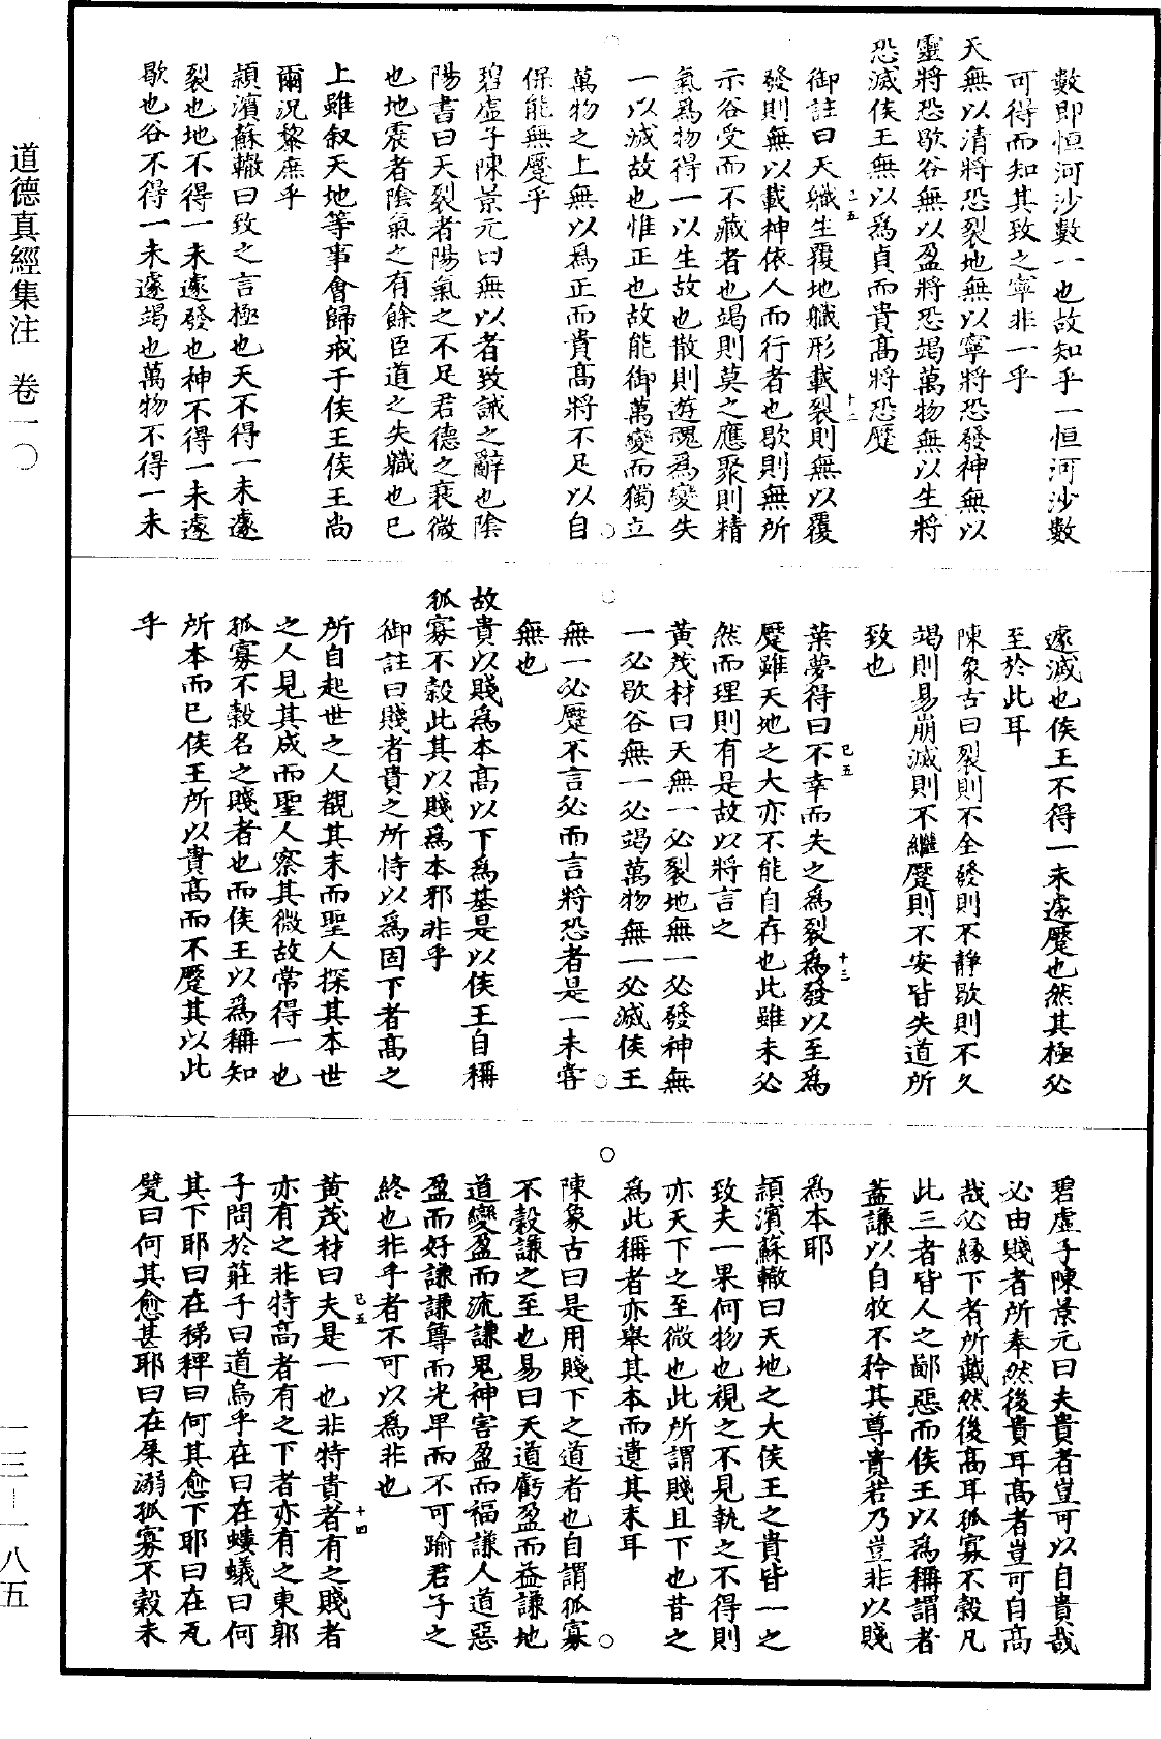 道德真經集注　卷一〇
數即恒河沙數一也故知乎一恒河沙數
可得而知其致之寧非一乎
天無以清將恐裂地無以寧將恐發神無以
靈將恐歇谷無以盈將恐竭萬物無以生將
恐滅侯王無以爲貞而貴髙將恐蹷
御註曰天軄生覆地軄形載裂則無以覆
發則無以載神依人而行者也歇則無所
示谷受而不藏者也竭則莫之應聚則精
氣爲物得一以生故也散則遊魂爲變失
一以滅故也惟正也故能御萬變而獨立
萬物之上無以爲正而貴髙將不足以自
保能無蹷乎
碧虛子陳景元曰無以者致誡之辭也陰
陽書曰天裂者陽氣之不足君德之衰微
也地震者陰氣之有餘臣道之失軄也已
上雖叙天地等事會歸戒于侯王侯王尚
爾況黎庶乎
頴濱蘇轍曰致之言極也天不得一未遽
裂也地不得一未遽發也神不得一未遽
歇也谷不得一未遽竭也萬物不得一未
遽滅也侯王不得一未遽蹷也然其極必
至於此耳
陳象古曰裂則不全發則不靜歇則不久
竭則易崩滅則不繼蹷則不安皆失道所
致也
葉夢得曰不幸而失之爲裂爲發以至爲
蹷雖天地之大亦不能自存也此雖未必
然而理則有是故以將言之
黃茂材曰天無一必裂地無一必發神無
一必歇谷無一必竭萬物無一必滅侯王
無一必蹷不言必而言將恐者是一未嘗
無也
故貴以賤爲本髙以下爲基是以侯王自稱
孤寡不穀此其以賤爲本邪非乎
御註曰賤者貴之所恃以爲固下者髙之
所自起世之人觀其末而聖人探其本世
之人見其成而聖人察其微故常得一也
孤寡不穀名之賤者也而侯王以爲稱知
所本而已侯王所以貴髙而不蹷其以此
乎
碧虛子陳景元曰夫貴者豈可以自貴哉
必由賤者所奉然後貴耳髙者豈可自髙
哉必緣下者所戴然後髙耳孤寡不穀凡
此三者皆人之鄙惡而侯王以爲稱謂者
蓋謙以自牧不矜其尊貴若乃豈非以賤
爲本耶
頴濱蘇轍曰天地之大侯王之貴皆一之
致夫一果何物也視之不見執之不得則
亦天下之至微也此所謂賤且下也昔之
爲此稱者亦舉其本而遺其末耳
陳象古曰是用賤下之道者也自謂孤寡
不穀謙之至也易曰天道虧盈而益謙地
道變盈而流謙鬼神害盈而福謙人道惡
盈而好謙謙尊而光卑而不可踰君子之
終也非乎者不可以爲非也
黃茂材曰夫是一也非特貴者有之賤者
亦有之非特髙者有之下者亦有之東郭
子問於莊子曰道烏乎在曰在螻蟻曰何
其下耶曰在稊稗曰何其愈下耶曰在瓦
甓曰何其愈甚耶曰在屎溺孤寡不穀未
一三－一八五